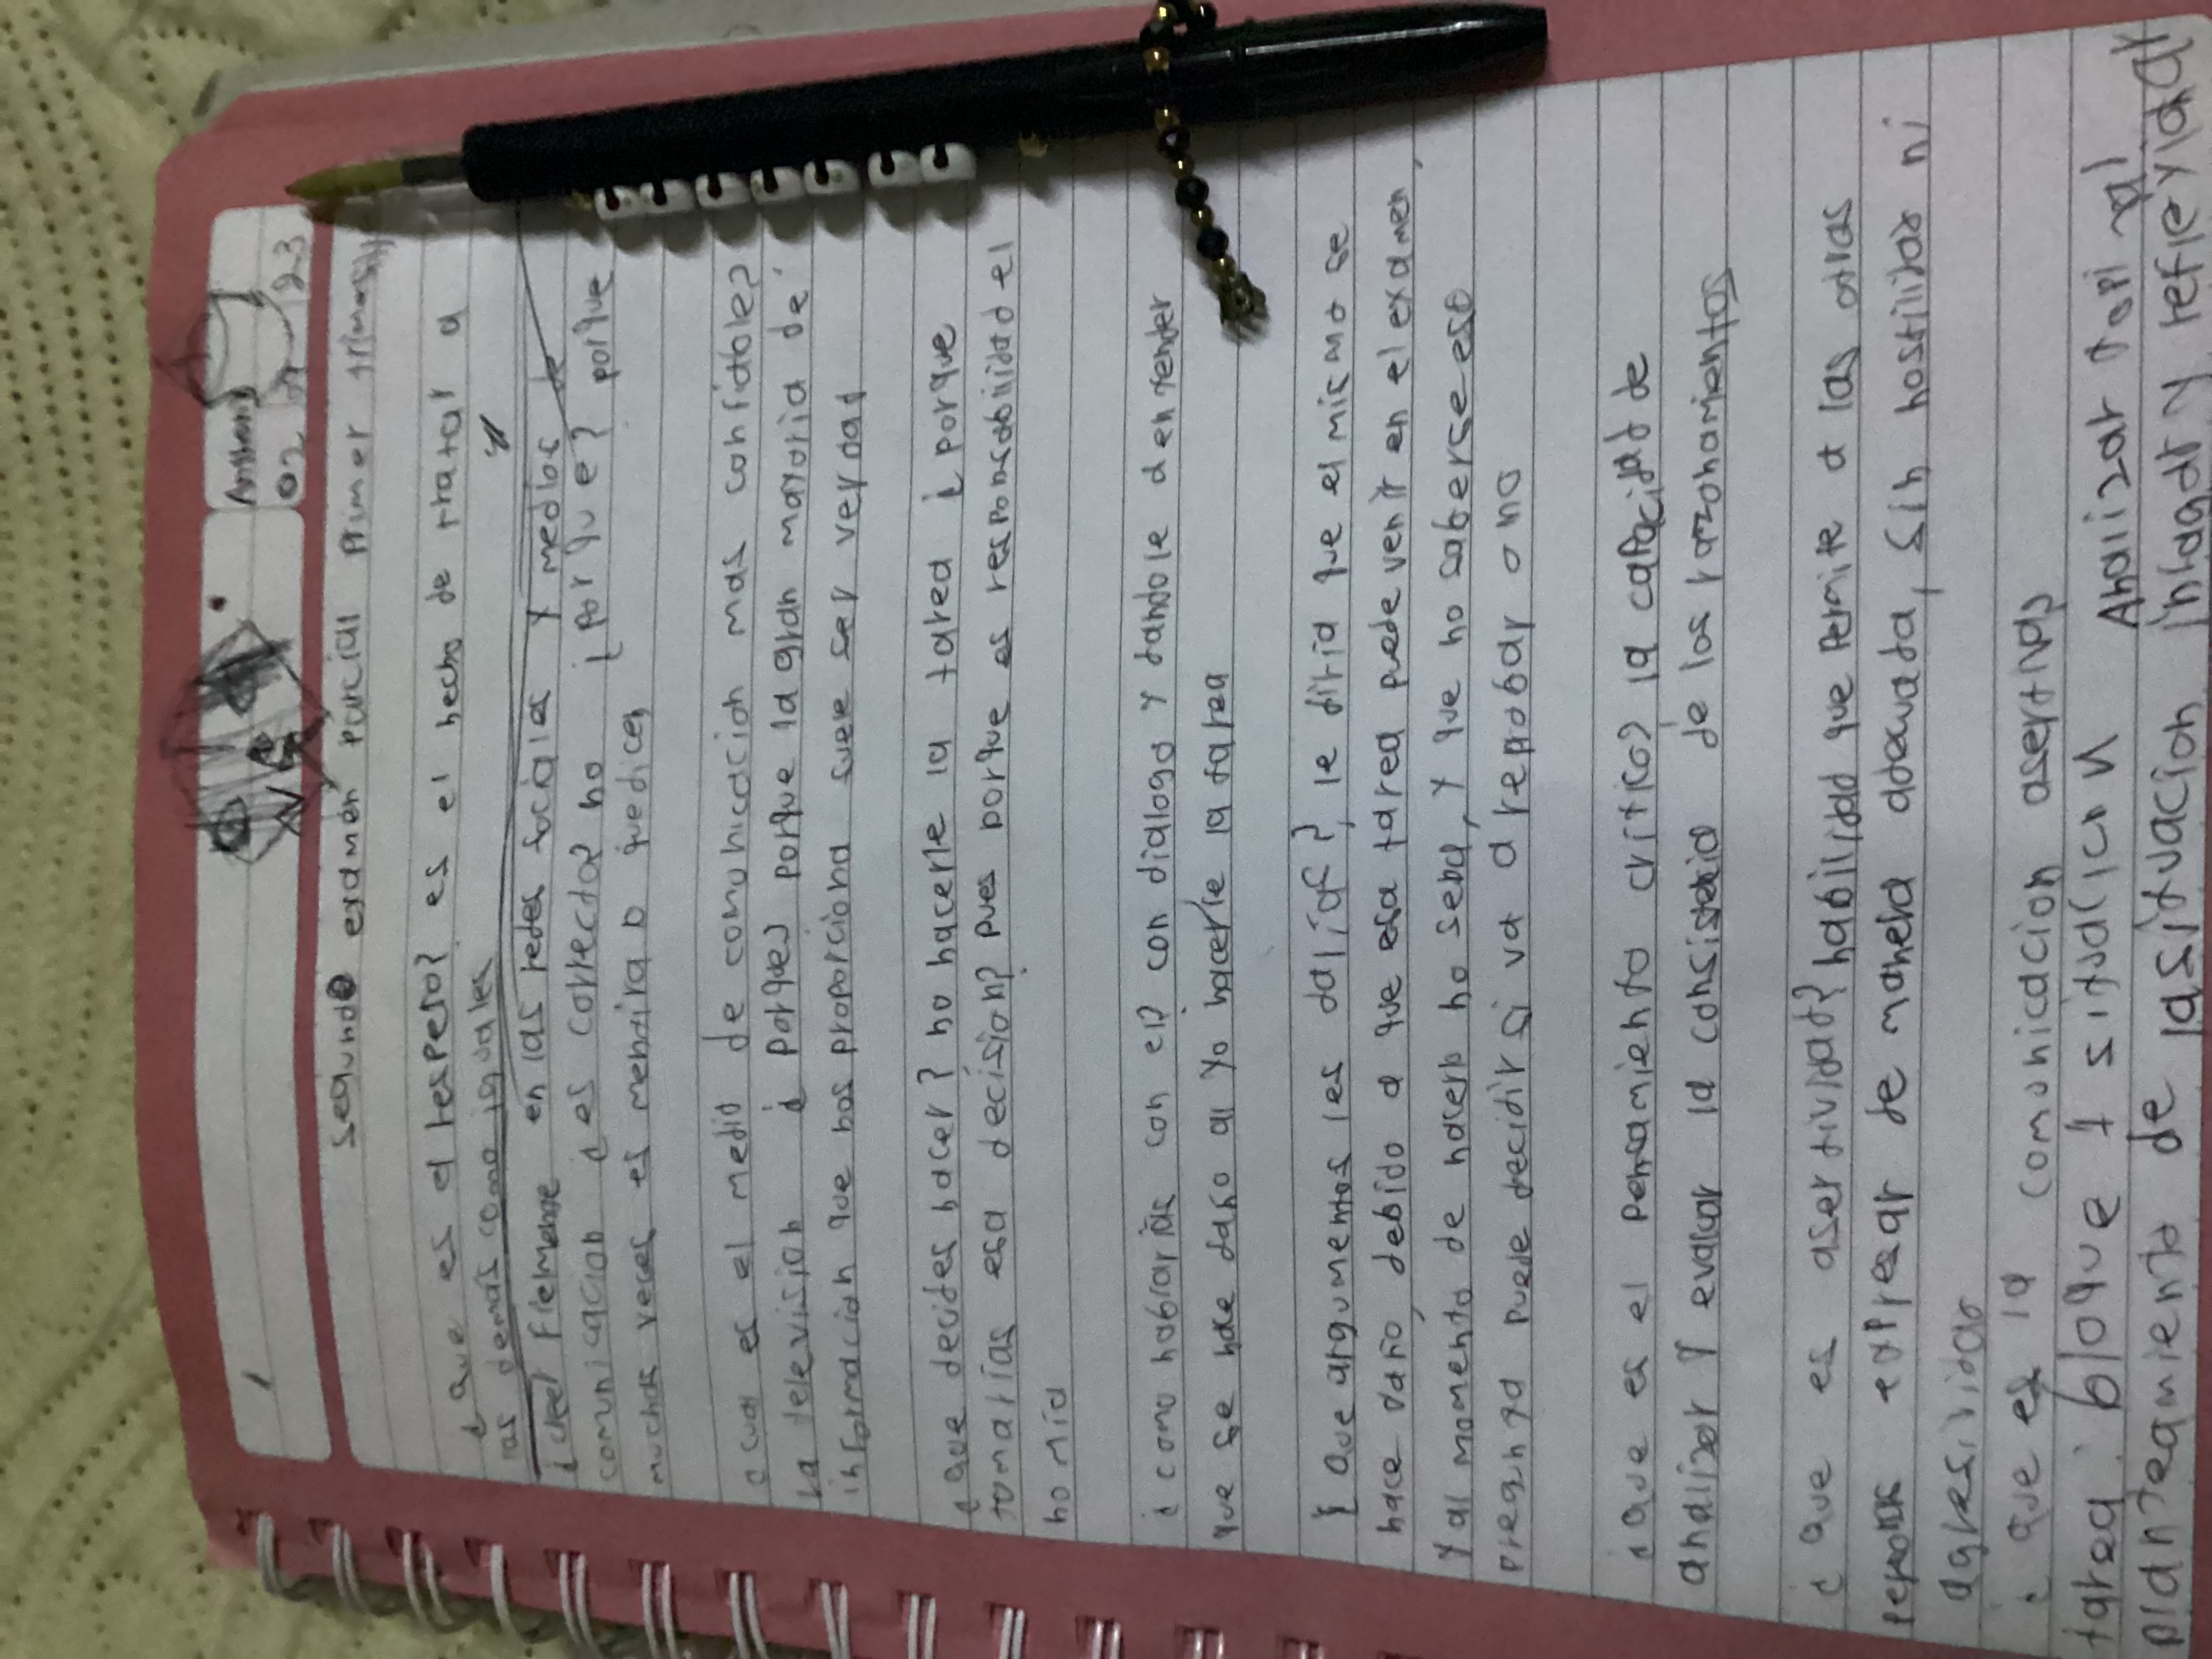 Anthony
02 23
segundo examen parcial primer trimestr
¿ que es el respeto? es el hecho de tratar a
las demas como iguales
¿ creer fielmente en las redes sociales y medios de
comunicacion ¿ es correcto? no ¿ por que? porque
muchas veces es mentira o que dicen
¿ cual es el medio de comunicacion mas confidable?
la television ¿ porque? porque la gran mayoria de
informacion que nos proporciona suele ser verdad
¿ que decides hacer? no hacerle la tarea ¿ porque
tomarias esa decision? pues porque es responsabilidad el
no mia
¿ como hablarias con el? con dialogo y dandole a entender
que se hace daño al yo hacerle la tarea
¿ que argumentos les darias?, le diria que el mismo se
hace daño, debido a que esa tarea puede venir en el examen,
y al momento de hacerlo no sebra, y que no saberse eso
pregunta puede decidir si va a reprobar o no
¿ que es el pensamiento critico? la capacidad de
analizar y evaluar la consistencia de los razonamientos
¿ que es asertividad? habilidad que permite a las otras
personas expresar de manera adecuada, sin hostilidar ni
agresividar
¿ que es la comunicacion asertiva
tarea: bloque 1 situacion Analizar
planteamiento de la situacion y reflexionar